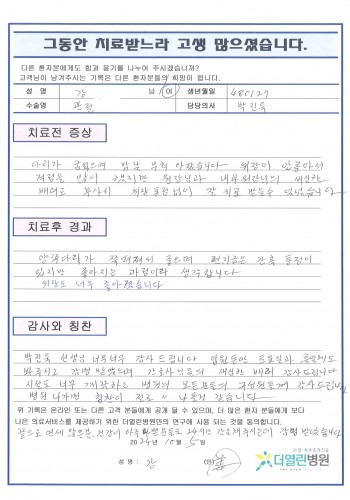 그동안 치료받느라 고생 많으셨습니다.
다른 환자분에게도 힘과 용기를 나누어 주시겠습니까?
고객님이 남겨주시는 기록은 다른 환자분들의 희망이 됩니다.
성 명 강 남 / 여 생년월일 480127
수술명 관절 담당의사 박진욱
치료전 증상
다리가 굽었으며 밤낮 무척 아팠습니다 위장이 안좋아서
걱정을 많이 했지만 원장님과 내부 원장님의 세심한
배려로 무사히 위장 통증없이 잘 치료 받을수 있었습니다
치료후 경과
양쪽다리가 쫙 펴져서 좋으며 펴지금은 간혹 통증이
있지만 좋아지는 과정이라 생각합니다
위장도 너무 좋아졌습니다
감사와 칭찬
박진욱 선생님 너무너무 감사드립니다 입원동안
감명 받았으며 간호사님들의 세심한 배려 감사드립니다
시설도 너무 깨끗하고 병원의 모든분들의 감사드립니다
병원 나가면 칭찬이 진료 나올것 같습니다
위 기록은 온라인 또는 다른 고객 분들에게 공개 될 수 있으며, 더 많은 환자 분들에게 보다
나은 의료서비스를 제공하기 위한 더열린병원만의 연구에 사용 되는 것을 동의합니다.
끝으로 24시간 간호해주시는것 감명 받았습니다
2024년 10월 5일
성 명 : 강 (인)
더열린병원